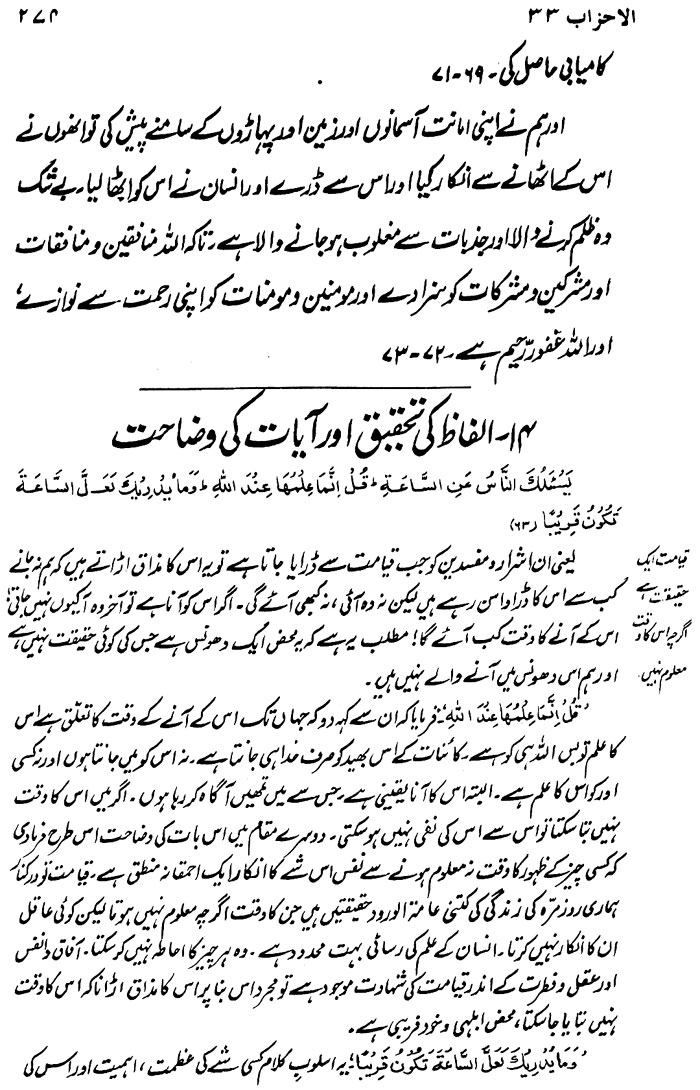 ۲۷۴ الاحزاب ۳۳
کامیابی حاصل کی۔ ۶۹-۷۱
اور ہم نے اپنی امانت آسمانوں اور زمین اور پہاڑوں کے سامنے پیش کی تو انھوں نے
اس کے اٹھانے سے انکار کیا اور اس سے ڈرے اور انسان نے اس کو اٹھا لیا۔ بے شک
وہ ظلم کرنے والا اور جذبات سے مغلوب ہو جانے والا ہے۔ تاکہ اللہ منافقین و منافقات
اور مشرکین و مشرکات کو سزا دے اور مومنین و مومنات کو اپنی رحمت سے نوازے،
اور اللہ غفور رحیم ہے۔ ۷۲-۷۳
۱۴۔ الفاظ کی تحقیق اور آیات کی وضاحت
يَسْـَٔلُكَ النَّاسُ عَنِ السَّاعَةِ ؕ قُلْ اِنَّمَا عِلْمُهَا عِنْدَ اللهِ ؕ وَمَا يُدْرِيْكَ لَعَلَّ السَّاعَةَ
تَكُوْنُ قَرِيْبًا (۶۳)
یعنی ان اشرار و مفسدین کو جب قیامت سے ڈرایا جاتا ہے تو یہ اس کا مذاق اڑاتے ہیں کہ ہم نہ جانے
کب سے اس کا ڈراوا سن رہے ہیں لیکن نہ وہ آئی، نہ کبھی آئے گی۔ اگر اس کو آنا ہے تو آخر وہ آ کیوں نہیں جاتی؛
اس کے آنے کا وقت کب آئے گا! مطلب یہ ہے کہ یہ محض ایک دھونس ہے جس کی کوئی حقیقت نہیں ہے
اور ہم اس دھونس میں آنے والے نہیں ہیں۔
قیامت ایک
حقیقت ہے
اگرچہ اس کا وقت
معلوم نہیں۔
'قُلْ اِنَّمَا عِلْمُهَا عِنْدَ اللهِ'۔ فرمایا کہ ان سے کہہ دو کہ جہاں تک اس کے آنے کے وقت کا تعلق ہے اس
کا علم تو بس اللہ ہی کو ہے۔ کائنات کے اس بھید کو صرف خدا ہی جانتا ہے۔ نہ اس کو میں جانتا ہوں اور نہ کسی
اور کو اس کا علم ہے۔ البتہ اس کا آنا یقینی ہے۔ جس سے میں تمھیں آگاہ کر رہا ہوں۔ اگر میں اس کا وقت
نہیں بتا سکتا تو اس سے اس کی نفی نہیں ہو سکتی۔ دوسرے مقام میں اس بات کی وضاحت اس طرح فرما دی
کہ کسی چیز کے ظہور کا وقت نہ معلوم ہونے سے نفس اس شے کا انکار ایک احمقانہ منطق ہے۔ قیامت تو درکنار
ہماری روز مرہ کی زندگی کی کتنی عامۃ الورود حقیقتیں ہیں جن کا وقت اگرچہ معلوم نہیں ہوتا لیکن کوئی عاقل
ان کا انکار نہیں کرتا۔ انسان کے علم کی رسائی بہت محدود ہے۔ وہ ہر چیز کا احاطہ نہیں کر سکتا۔ آفاق و انفس
اور عقل و فطرت کے اندر قیامت کی شہادت موجود ہے تو مجرد اس بنا پر اس کا مذاق اڑانا کہ اس کا وقت
نہیں بتایا جا سکتا، محض ابلہی و خود فریبی ہے۔
'وَمَا يُدْرِيْكَ لَعَلَّ السَّاعَةَ تَكُوْنُ قَرِيْبًا'؛ یہ اسلوبِ کلام کسی شے کی عظمت، اہمیت اور اس کی